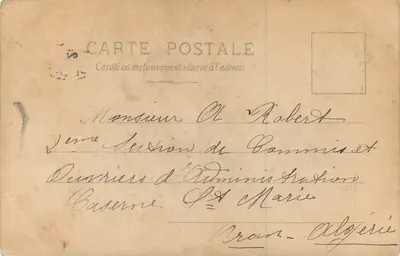 CARTE POSTALE
Ce côté est exclusivement réservé à l'adresse
Monsieur A Robert
2eme Section de Commis et
Ouvriers d'Administration
Caserne St Marie
Oran - Algérie